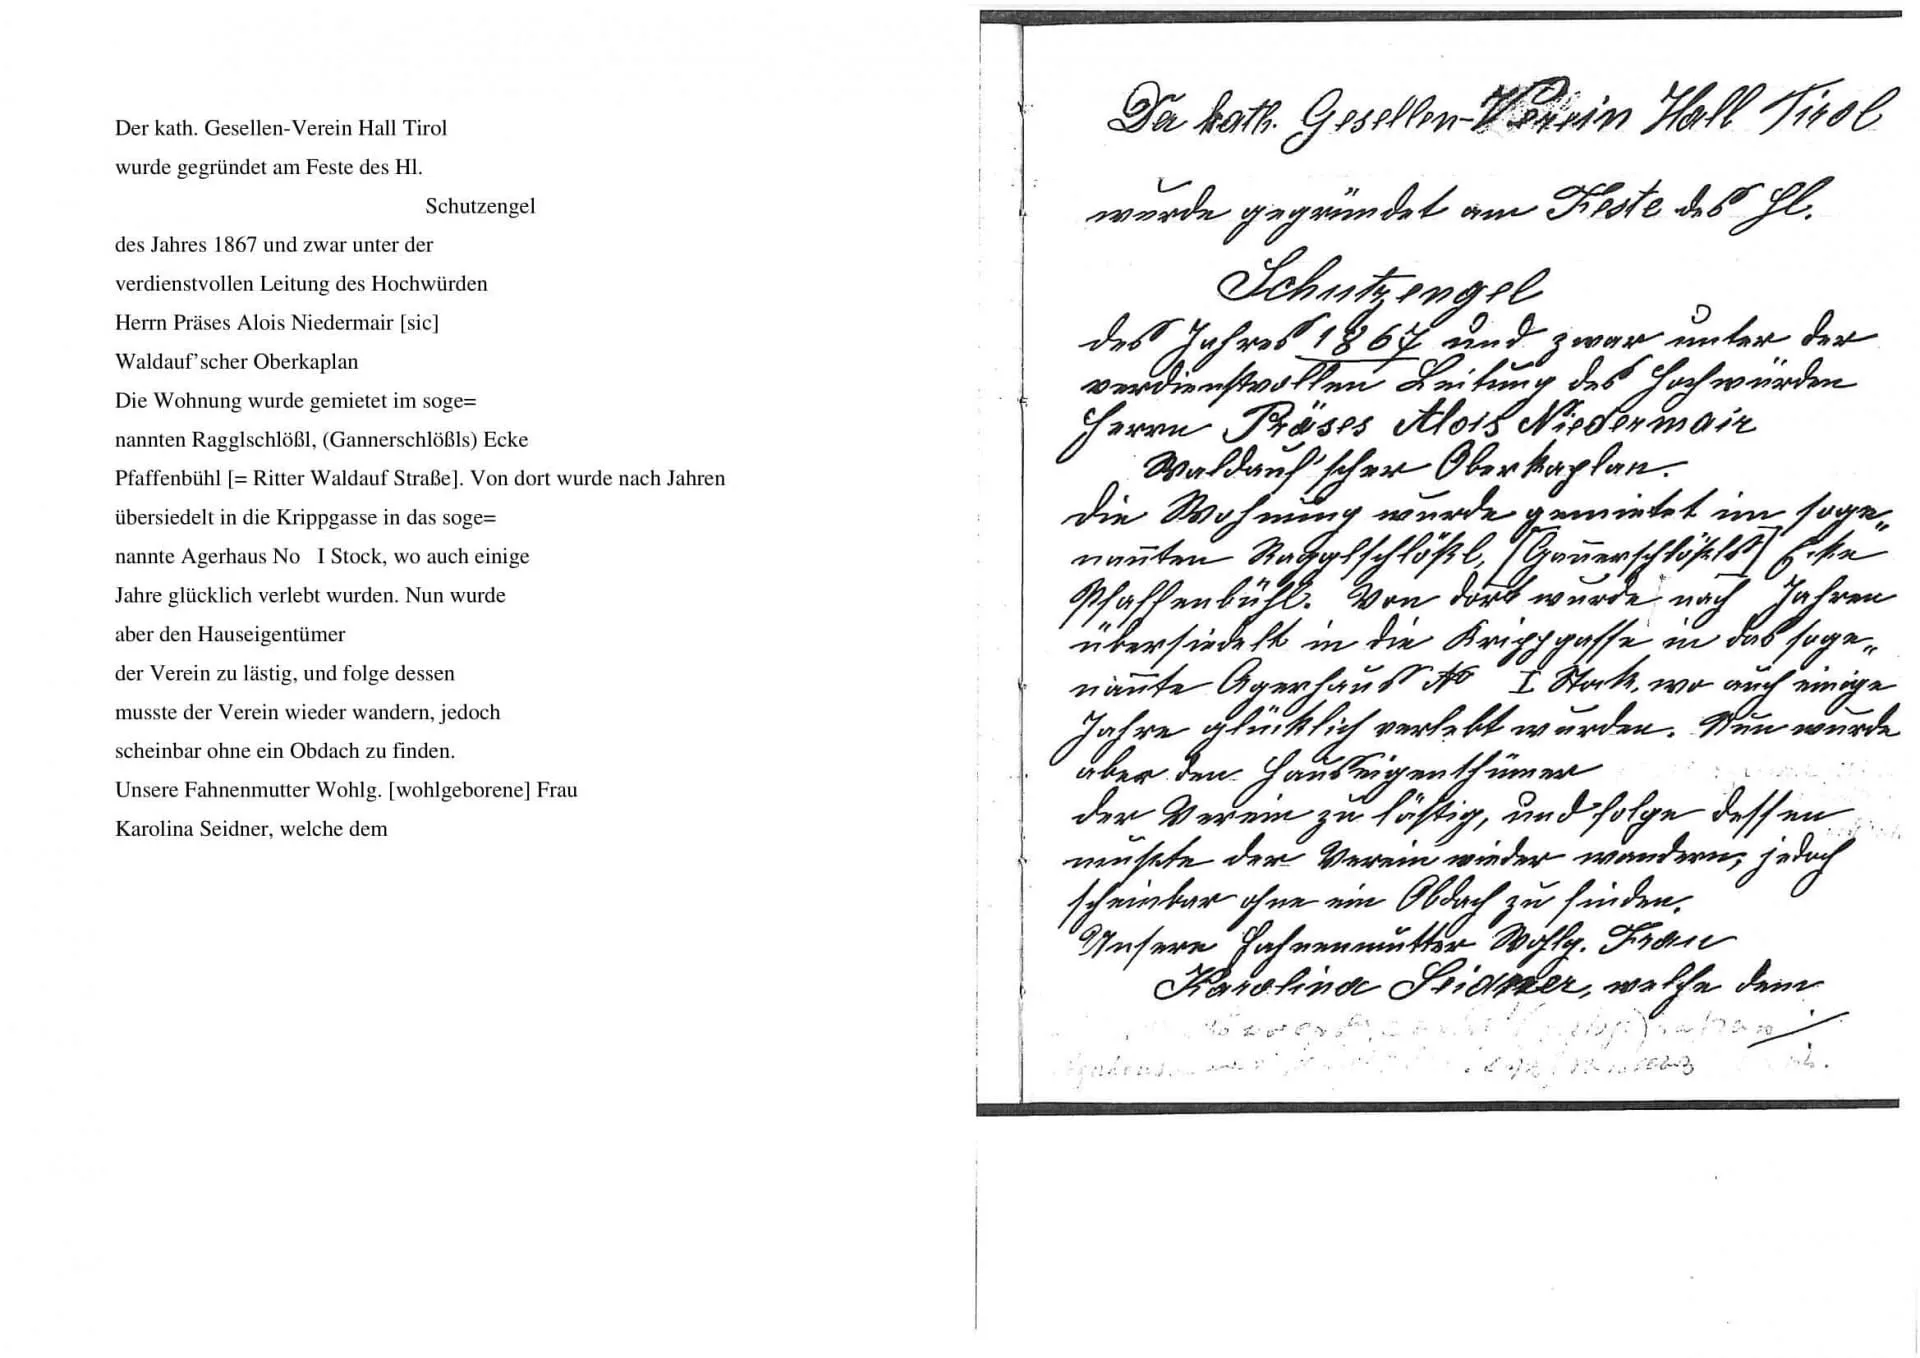 Der kath. Gesellen-Verein Hall Tirol
wurde gegründet am Feste des Hl.
Schutzengel
des Jahres 1867 und zwar unter der
verdienstvollen Leitung des Hochwürden
Herrn Präses Alois Niedermair [sic]
Waldauf’scher Oberkaplan
Die Wohnung wurde gemietet im soge=
nannten Ragglschlößl, (Gannerschlößls) Ecke
Pfaffenbühl [= Ritter Waldauf Straße]. Von dort wurde nach Jahren
übersiedelt in die Krippgasse in das soge=
nannte Agerhaus No   I Stock, wo auch einige
Jahre glücklich verlebt wurden. Nun wurde
aber den Hauseigentümer
der Verein zu lästig, und folge dessen
musste der Verein wieder wandern, jedoch
scheinbar ohne ein Obdach zu finden.
Unsere Fahnenmutter Wohlg. [wohlgeborene] Frau
Karolina Seidner, welche dem
Der kath. Gesellen-Verein Hall Tirol
wurde gegründet am Feste des Hl.
Schutzengel
des Jahres 1867 und zwar unter der
verdienstvollen Leitung des Hochwürden
Herrn Präses Alois Niedermair
Waldauf'scher Oberkaplan.
Die Wohnung wurde gemietet im soge„
nannten Ragglschlößl, [Gannerschlößls] Ecke
Pfaffenbühl. Von dort wurde nach Jahren
übersiedelt in die Krippgasse in das soge„
nannte Agerhaus No I Stock, wo auch einige
Jahre glücklich verlebt wurden. Nun wurde
aber den Hauseigenthümer
der Verein zu lästig, und folge dessen
mußte der Verein wieder wandern, jedoch
scheinbar ohne ein Obdach zu finden.
Unsere Fahnenmutter Wohlg. Frau
Karolina Seidner, welche dem